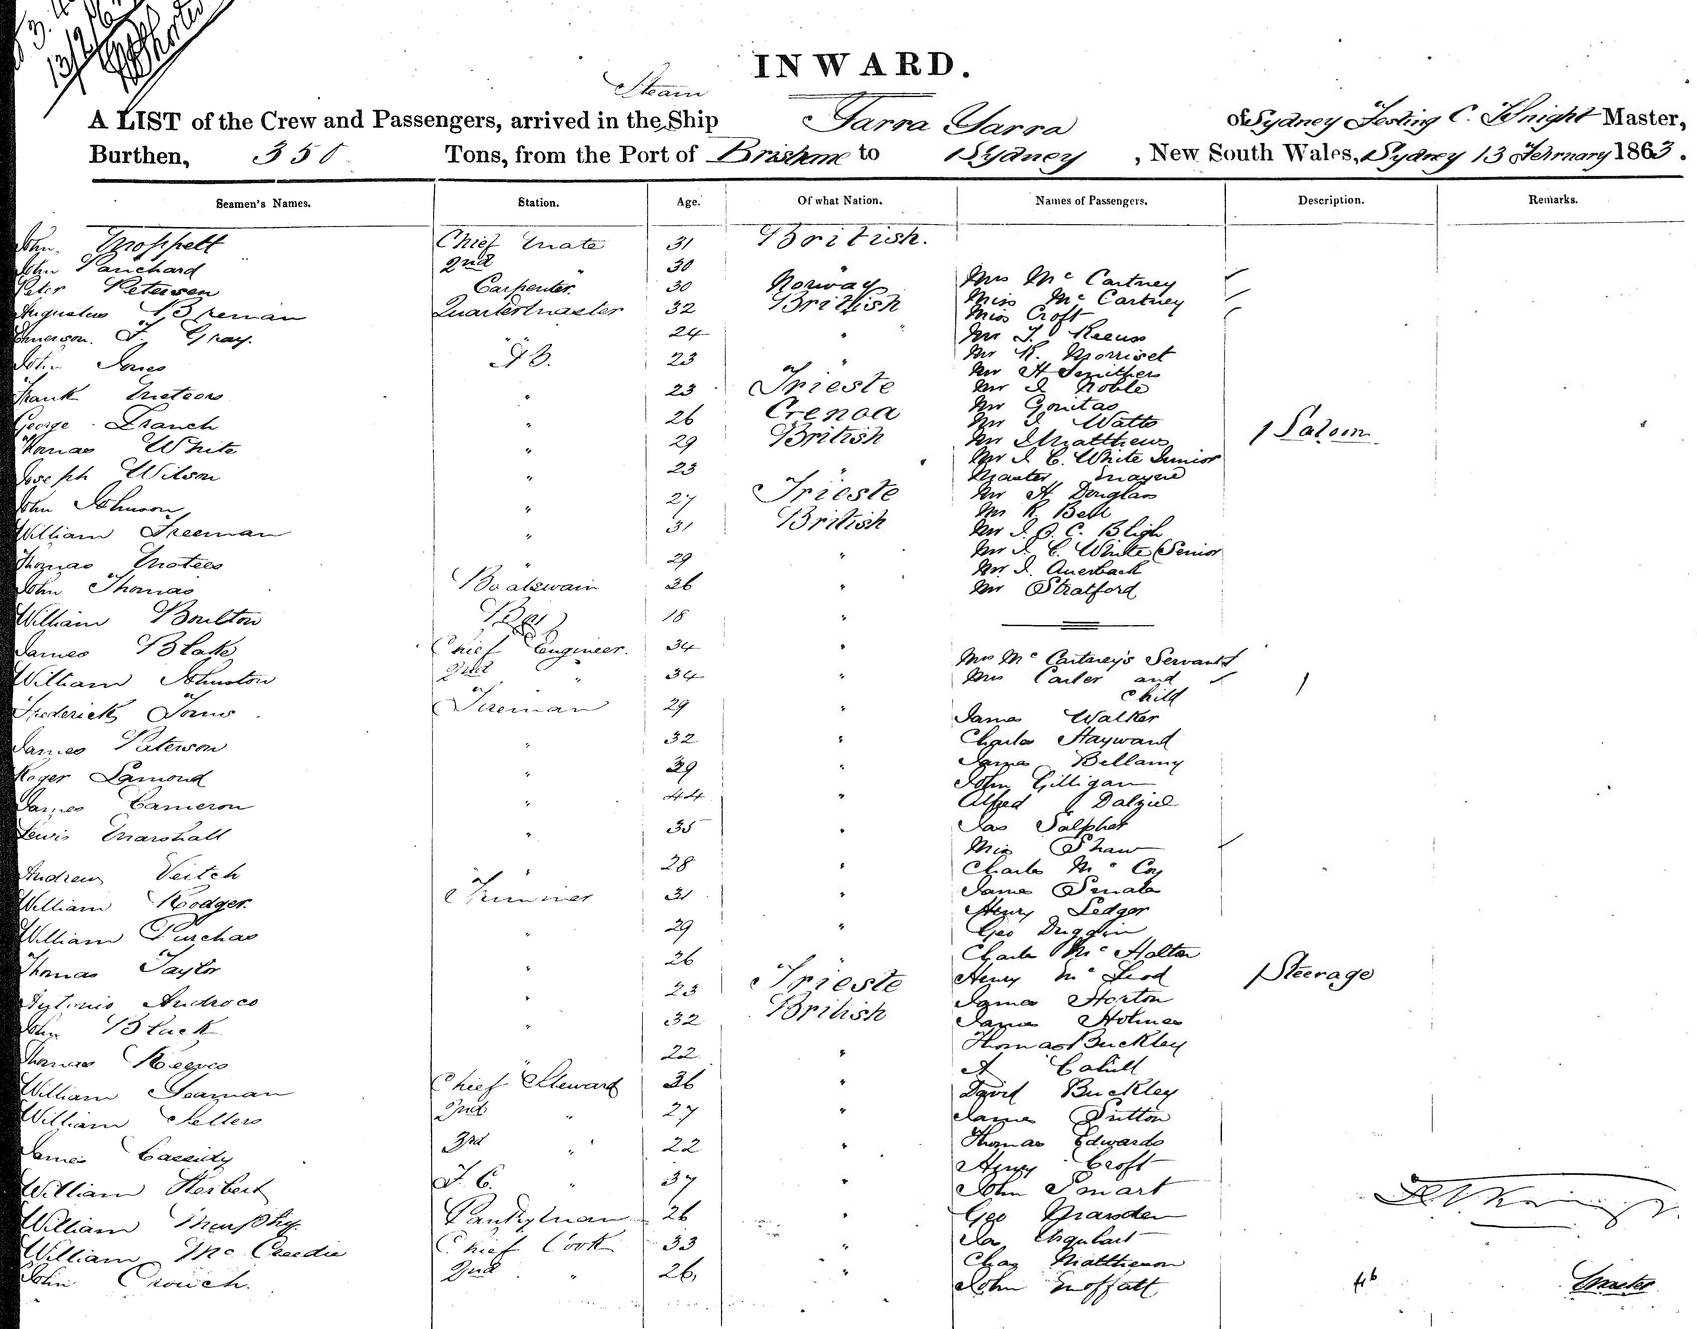 13/2/63
INWARD.
Steam
A LIST of the Crew and Passengers, arrived in the Ship Yarra Yarra of Sydney C. Knight Master,
Burthen, 350 Tons, from the Port of Brisbane to Sydney, New South Wales, Sydney 13 February 1863.
Seamen's Names. Station. Age. Of what Nation. Names of Passengers. Description. Remarks.
John Moppett Chief Mate 31 British.
John Panchard 2nd " 30 "
Peter Petersen Carpenter 30 Norway
Augustus Breman Quartermaster 32 British
Emerson F. Gray. " 24 "
John Jones AB. 23 "
Frank Meteors " 23 Trieste
George Franch " 26 Genoa
Thomas White " 29 British
Joseph Wilson " 23 "
John Johnson " 27 Trieste
William Freeman " 31 British
Thomas Matees " 29 "
John Thomas Boatswain 36 "
William Boulton Boy 18 "
James Blake Chief Engineer. 34 "
William Johnston 2nd " 34 "
Frederick Toms Fireman 29 "
James Paterson " 32 "
Roger Lamond " 39 "
James Cameron " 44 "
Lewis Marshall " 35 "
Andrew Veitch " 28 "
William Rodger Trimmer 31 "
William Purchas " 29 "
Thomas Taylor " 26 "
Antonio Androco " 23 Trieste
John Black " 32 British
Thomas Reeves " 22 "
William Yeaman Chief Steward 36 "
William Sellers 2nd " 27 "
James Cassidy 3rd " 22 "
William Herbert F. C. " 37 "
William Murphy Pantryman 26 "
William McCreedie Chief Cook 33 "
John Crouch. 2nd " 26 "
Mrs McCartney
Miss McCartney
Miss Croft
Mr J. Reeves
Mr R. Morriset
Mr H Smithers
Mr J Noble
Mr Gonitas
Mr J Watts
Mr J Matthews
Mr J. C. White Junior
Master Mayne
Mr H Douglass
Mr R Bell
Mr J. O. C. Bligh
Mr J. C. White Senior
Mr J. Auerback
Mr Stratford
Saloon
Mrs McCartney's Servant
Mrs Carter and
Child
James Walker
Charles Hayward
James Bellamy
John Gilligan
Alfred Dalziel
Jas Salpher
Miss Shaw
Charles McCoy
James Smala
Henry Ledger
Geo Duggin
Charles McHalton
Henry McLeod
James Horton
James Holmes
Thomas Buckley
A Cahill
David Buckley
James Sutton
Thomas Edwards
Henry Croft
John Smart
Geo Marsden
Jas Urquhart
Chas Mattheson
John Moffatt
Steerage
46
Master